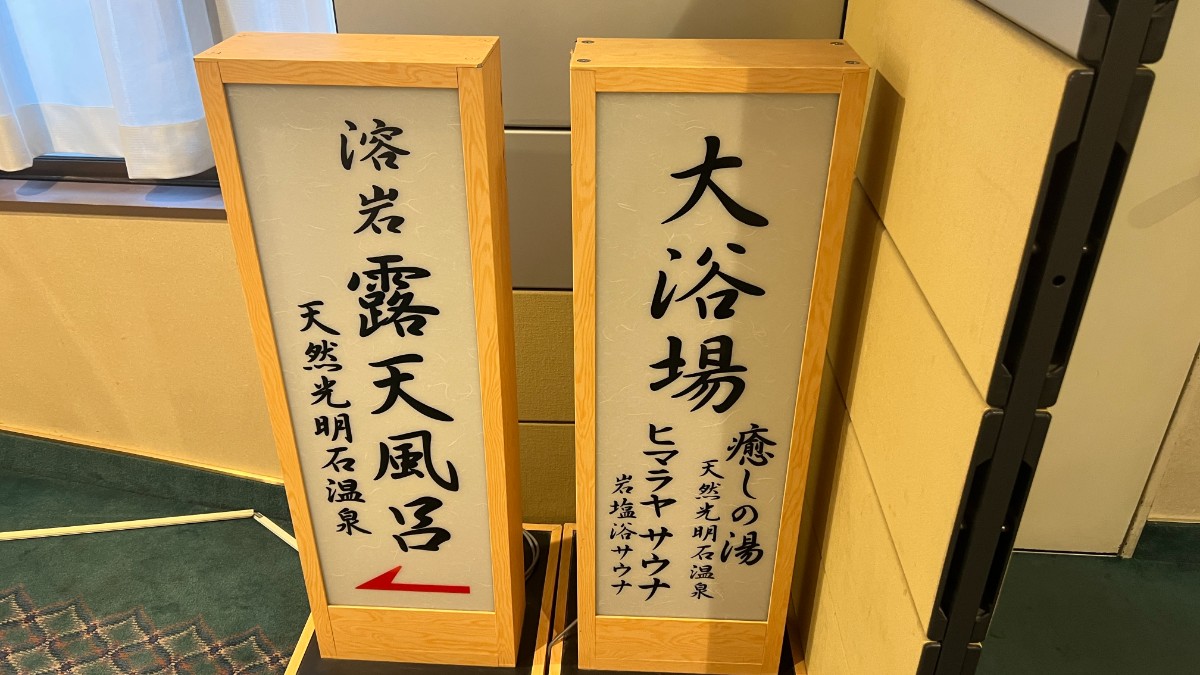 溶岩露天風呂
天然光明石温泉
大浴場
癒しの湯
天然光明石温泉
ヒマラヤサウナ
岩塩浴サウナ